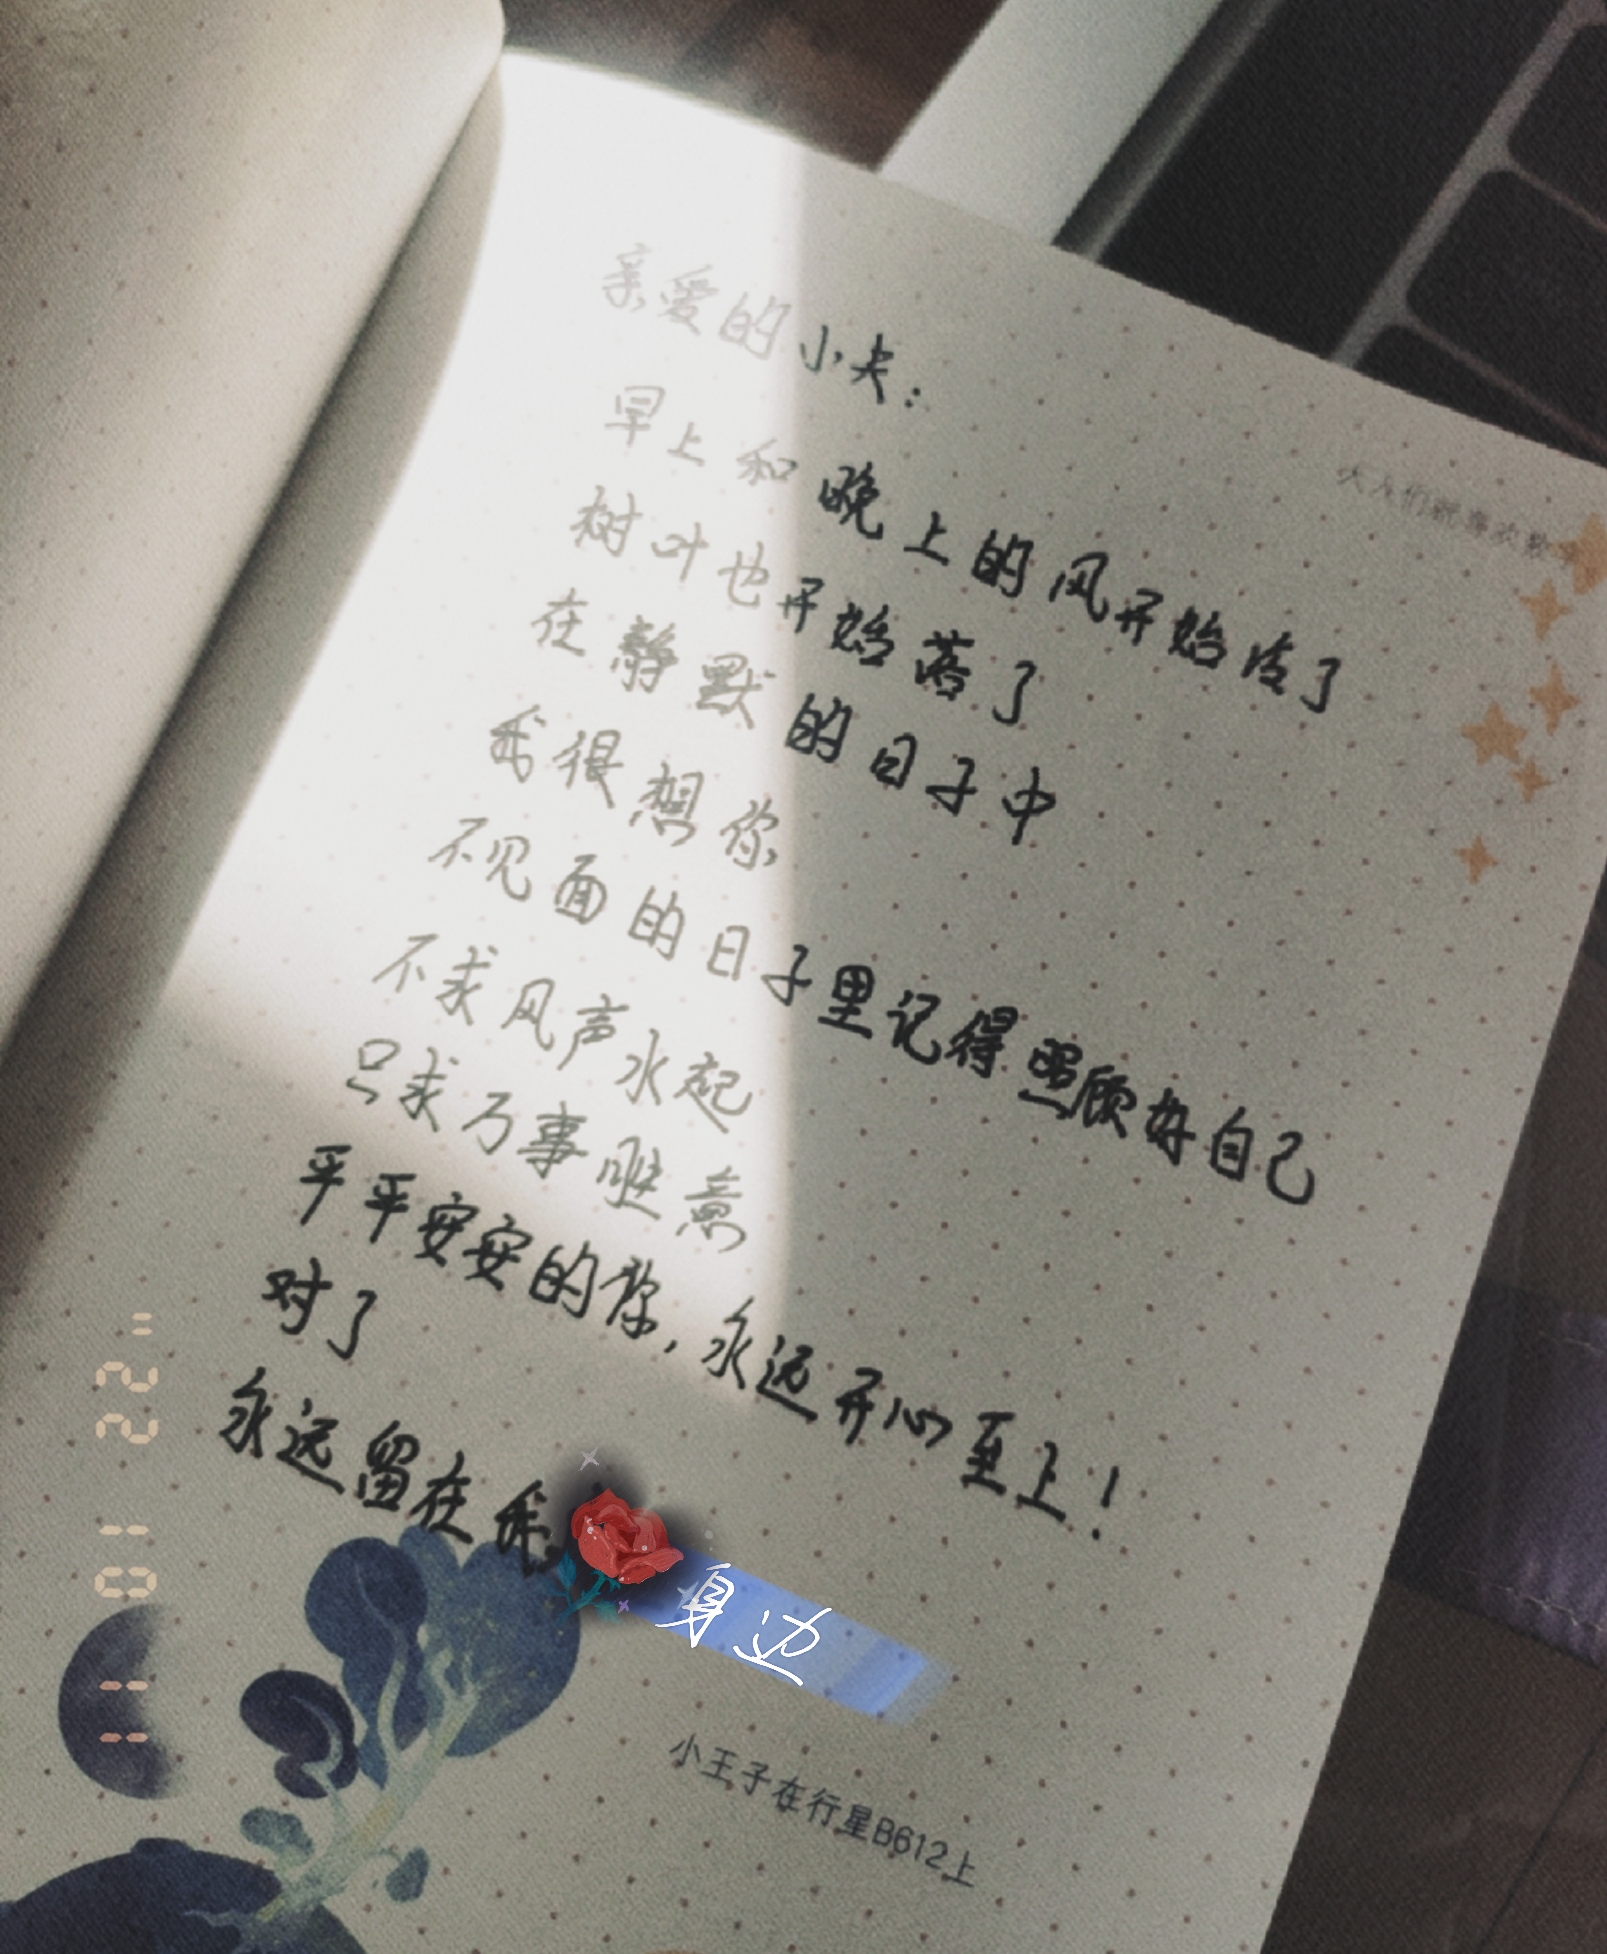 亲爱的小夫：
早上和晚上的风开始冷了
树叶也开始落了
在静默的日子中
我很想你
不见面的日子里记得照顾好自己
不求风声水起
只求万事顺意
平平安安的你，永远开心至上！
对了
永远留在我身边
大人们就喜欢数字
小王子在行星B612上
11 10 22 "